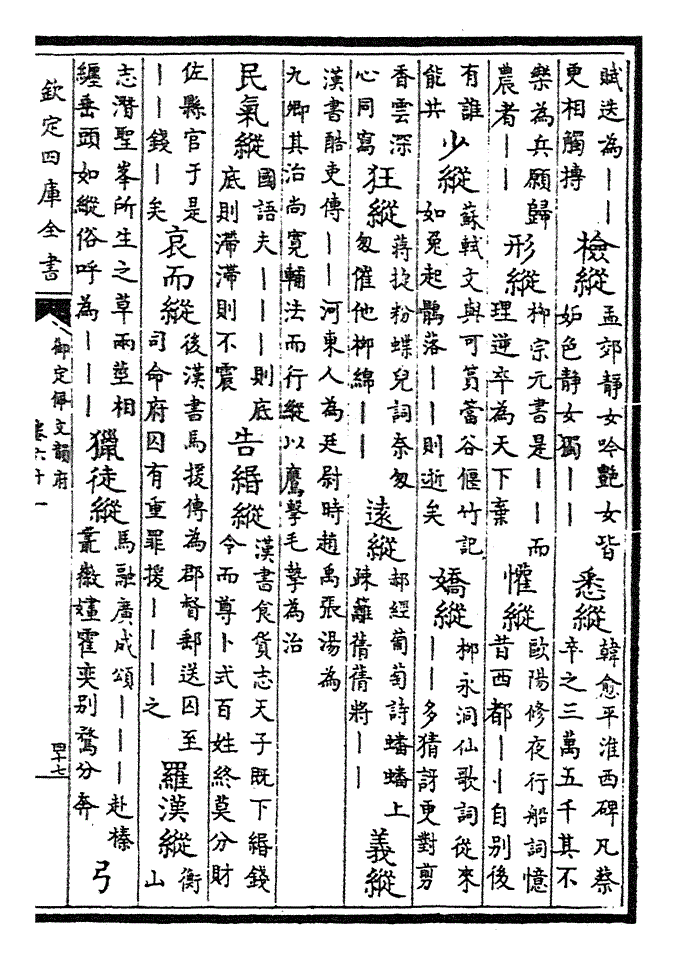 賦迭為｜｜
更相觸搏
檢縱
孟郊靜女吟艷女皆
妬色靜女獨｜｜
悉縱
韓愈平淮西碑凡蔡
卒之三萬五千其不
樂為兵願歸
農者｜｜
形縱
柳宗元書是｜｜而
理逆卒為天下棄
懽縱
歐陽修夜行船詞憶
昔西都｜｜自別後
有誰
能共
少縱
蘇軾文與可篔簹谷偃竹記
如兔起鶻落｜｜則逝矣
嬌縱
柳永洞仙歌詞從来
｜｜多猜訝更對剪
香雲深
心同寫
狂縱
蔣捷粉蝶兒詞奈匆
匆催他柳綿｜｜
遠縱
郝經葡萄詩蟠蟠上
疎籬蒨蒨將｜｜
義縱
漢書酷吏傳｜｜河東人為廷尉時趙禹張湯為
九卿其治尚寬輔法而行縱以鷹擊毛摯為治
民氣縱
國語夫｜｜｜則底
底則滯滯則不震
告緡縱
漢書食貨志天子既下緡錢
令而尊卜式百姓終莫分財
佐縣官于是
｜｜錢｜矣
哀而縱
後漢書馬援傳為郡督郵送囚至
司命府囚有重罪援｜｜｜之
羅漢縱
衡
山
志潛聖峯所生之草兩莖相
纒垂頭如縱俗呼為｜｜｜
獵徒縱
馬融廣成頌｜｜｜赴榛
叢徽嫿霍奕別鶩分奔
弓
欽定四庫全書
御定佩文韻府
卷六十一
四十七